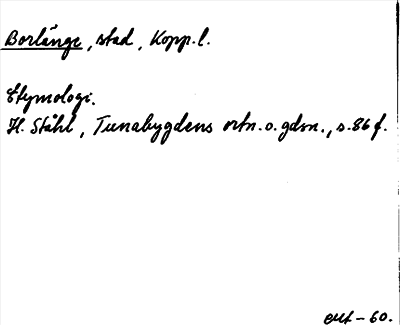 Borlänge, stad, Kopp.l.
Etymologi.
H. Ståhl, Tunabygdens ortn. o. gdsn., s. 86 f.
-60.